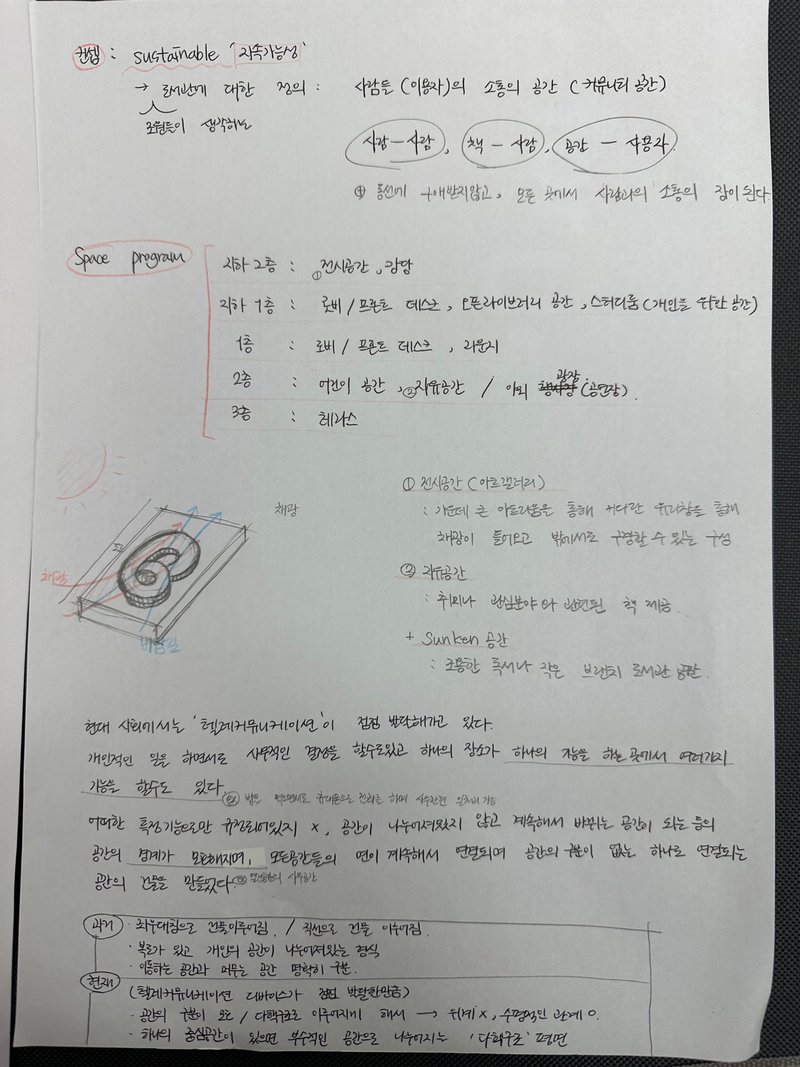 컨셉 : sustainable '지속가능성'
→ 도서관에 대한 정의 : 사람들 (이용자)의 소통의 공간 ( 커뮤니티 공간)
조원들이 생각하는
사람 - 사람, 책 - 사람, 공간 - 사용자.
⊕ 동선에 구애받지않고, 모든 곳에서 사람과의 소통의 장이 된다.
Space program
지하 2층 : ①전시공간, 강당
지하 1층 : 로비 / 프론트 데스크, 오픈라이브러리 공간, 스터디룸 (개인을 위한 공간)
1층 : 로비 / 프론트 데스크, 라운지
광장
2층 : 어린이 공간, ②자유공간 / 야외 행사장 (공연장).
3층 : 테라스
① 전시공간 (아트갤러리)
채광
: 가운데 큰 아트리움을 통해 커다란 유리창을 통해
채광이 들어오고 밖에서도 구경할 수 있는 구성.
채광
② 자유공간
: 취미나 관심분야와 관련된 책 제공.
+ Sunken 공간
바람길
: 조용한 독서나 작은 브랜치 도서관 공간.
현대 사회에서는 '텔레커뮤니케이션'이 점점 발달해가고 있다.
개인적인 일을 하면서도 사무적인 결정을 할수도있고 하나의 장소가 하나의 기능을 하는 곳에서 여러가지
기능을 할수도 있다. ex) 밥을 먹으면서도 휴대폰으로 전화를 하며 사무적인 가능
어떠한 특정기능으로만 규정되어있지 x, 공간이 나누어져있지 않고 계속해서 바뀌는 공간이 되는 등의
공간의 경계가 모호해지며, 모든공간들의 면이 계속해서 연결되며 공간의 구분이 없는 하나로 연결되는
공간의 건물을 만들었다. 사무공간
과거 · 좌우대칭으로 건물이루어짐. / 직선으로 건물 이루어짐.
· 복도가 있고 개인의 공간이 나누어져있는 형식
· 이동하는 공간과 머무는 공간 명확히 구분.
현재 (텔레커뮤니케이션 디바이스가 점점 발달한만큼)
· 공간의 구분이 모호 / 다핵구조로 이루어지게 해서 → 위계 x, 수평적인 관계 o.
· 하나의 중심공간이 있으면 부수적인 공간으로 나누어지는 '다핵구조' 평면